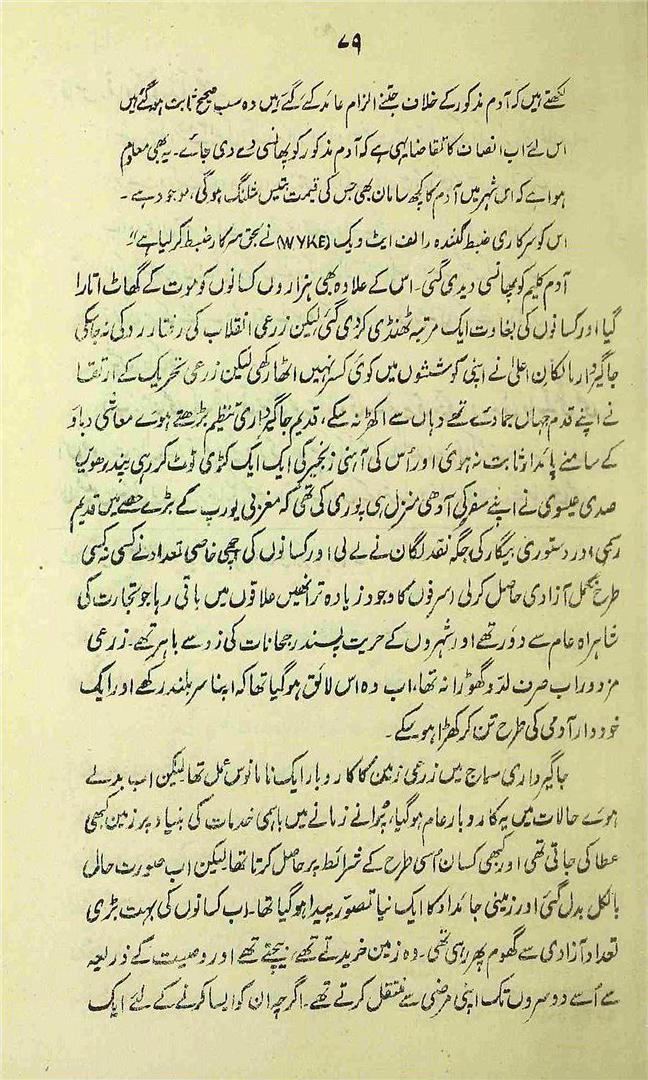 ۷۹
لکھتے ہیں کہ آدم مذکور کے خلاف جتنے الزام عائد کئے گئے ہیں وہ سب صحیح ثابت ہو گئے ہیں
اس لئے اب انصاف کا تقاضا یہی ہے کہ آدم مذکور کو پھانسی دے دی جائے۔ یہ بھی معلوم
ہوا ہے کہ اس شہر میں آدم کا کچھ سامان بھی جس کی قیمت بتیس شلنگ ہوگی، موجود ہے۔
اس کو سرکاری ضبط کنندہ رالف ایٹ ویک (WYKE) نے بحق سرکار ضبط کر لیا ہے"
آدم کلیم کو پھانسی دیدی گئی۔ اس کے علاوہ بھی ہزاروں کسانوں کو موت کے گھاٹ اتارا
گیا اور کسانوں کی بغاوت ایک مرتبہ ٹھنڈی کر دی گئی لیکن زرعی انقلاب کی رفتار روکی نہ جا سکی
جاگیردار مالکان اعلیٰ نے اپنی کوششوں میں کوئی کسر نہیں اٹھا رکھی لیکن زرعی تحریک کے ارتقا
نے اپنے قدم جہاں جما دئے تھے وہاں سے اکھڑ نہ سکے، قدیم جاگیرداری تنظیم بڑھتے ہوئے معاشی دباؤ
کے سامنے پائدار ثابت نہ ہوئی اور اُس کی آہنی زنجیر کی ایک ایک کڑی ٹوٹ کر رہی پندرھویں
صدی عیسوی نے اپنے سفر کی آدھی منزل ہی پوری کی تھی کہ مغربی یورپ کے بڑے حصے میں قدیم
رسمی اور دستوری بیگار کی جگہ نقد لگان نے لے لی اور کسانوں کی اچھی خاصی تعداد نے کسی نہ کسی
طرح مکمل آزادی حاصل کر لی اسرفوں کا وجود زیادہ تر انھیں علاقوں میں باقی رہا جو تجارت کی
شاہراہ عام سے دور تھے اور شہروں کے حریت پسند رجحانات کی زد سے باہر تھے۔ زرعی
مزدور اب صرف لدّو گھوڑا نہ تھا، اب وہ اس لائق ہو گیا تھا کہ اپنا سر بلند رکھے اور ایک
خوددار آدمی کی طرح تن کر کھڑا ہو سکے۔
جاگیرداری سماج میں زرعی زمین کا کاروبار ایک نامانوس عمل تھا لیکن اب بدلے
ہوئے حالات میں یہ کاروبار عام ہو گیا، پُرانے زمانے میں باہمی خدمات کی بنیاد پر زمین کبھی
عطا کی جاتی تھی اور کبھی کسان اُسی طرح کے شرائط پر حاصل کرتا تھا لیکن اب صورت حال
بالکل بدل گئی اور زمینی جائداد کا ایک نیا تصوّر پیدا ہو گیا تھا۔ اب کسانوں کی بہت بڑی
تعداد آزادی سے گھوم پھر رہی تھی۔ وہ زمین خریدتے تھے، بیچتے تھے اور وصیت کے ذریعہ
سے اُسے دوسروں تک اپنی مرضی سے منتقل کرتے تھے۔ اگرچہ ان کو ایسا کرنے کے لئے ایک